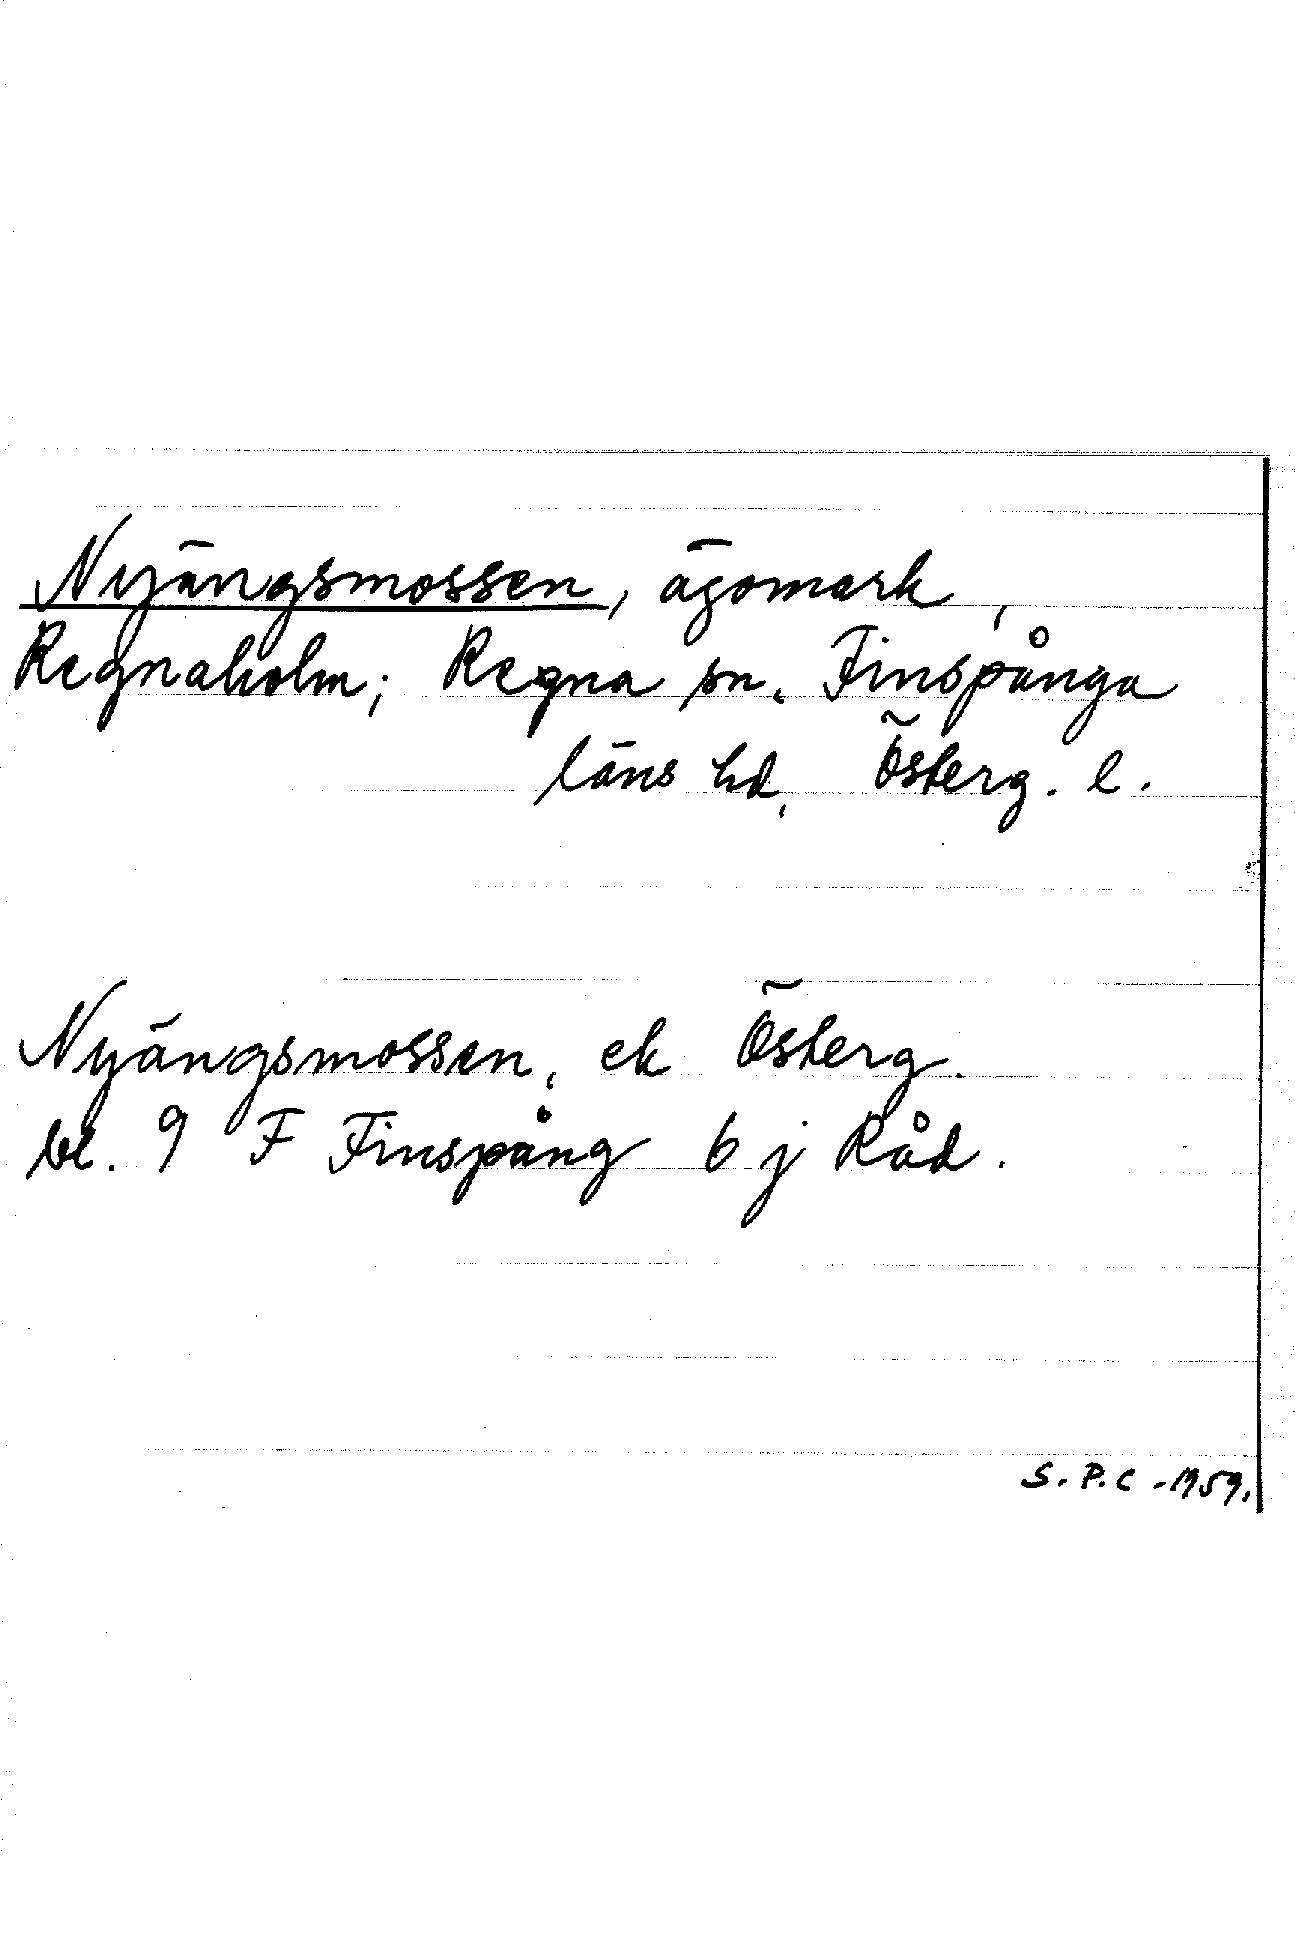 Nyängsmossen, ägomark,
Regnaholm; Regna sn, Finspånga
läns hd, Österg. l.
Nyängsmossen, ek Österg.
bl. 9 F Finspång 6 j Råd.
S.P.C - 1959.